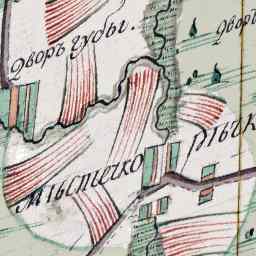 дворъ губы.
дворъ
мѣстечко
рѣчк